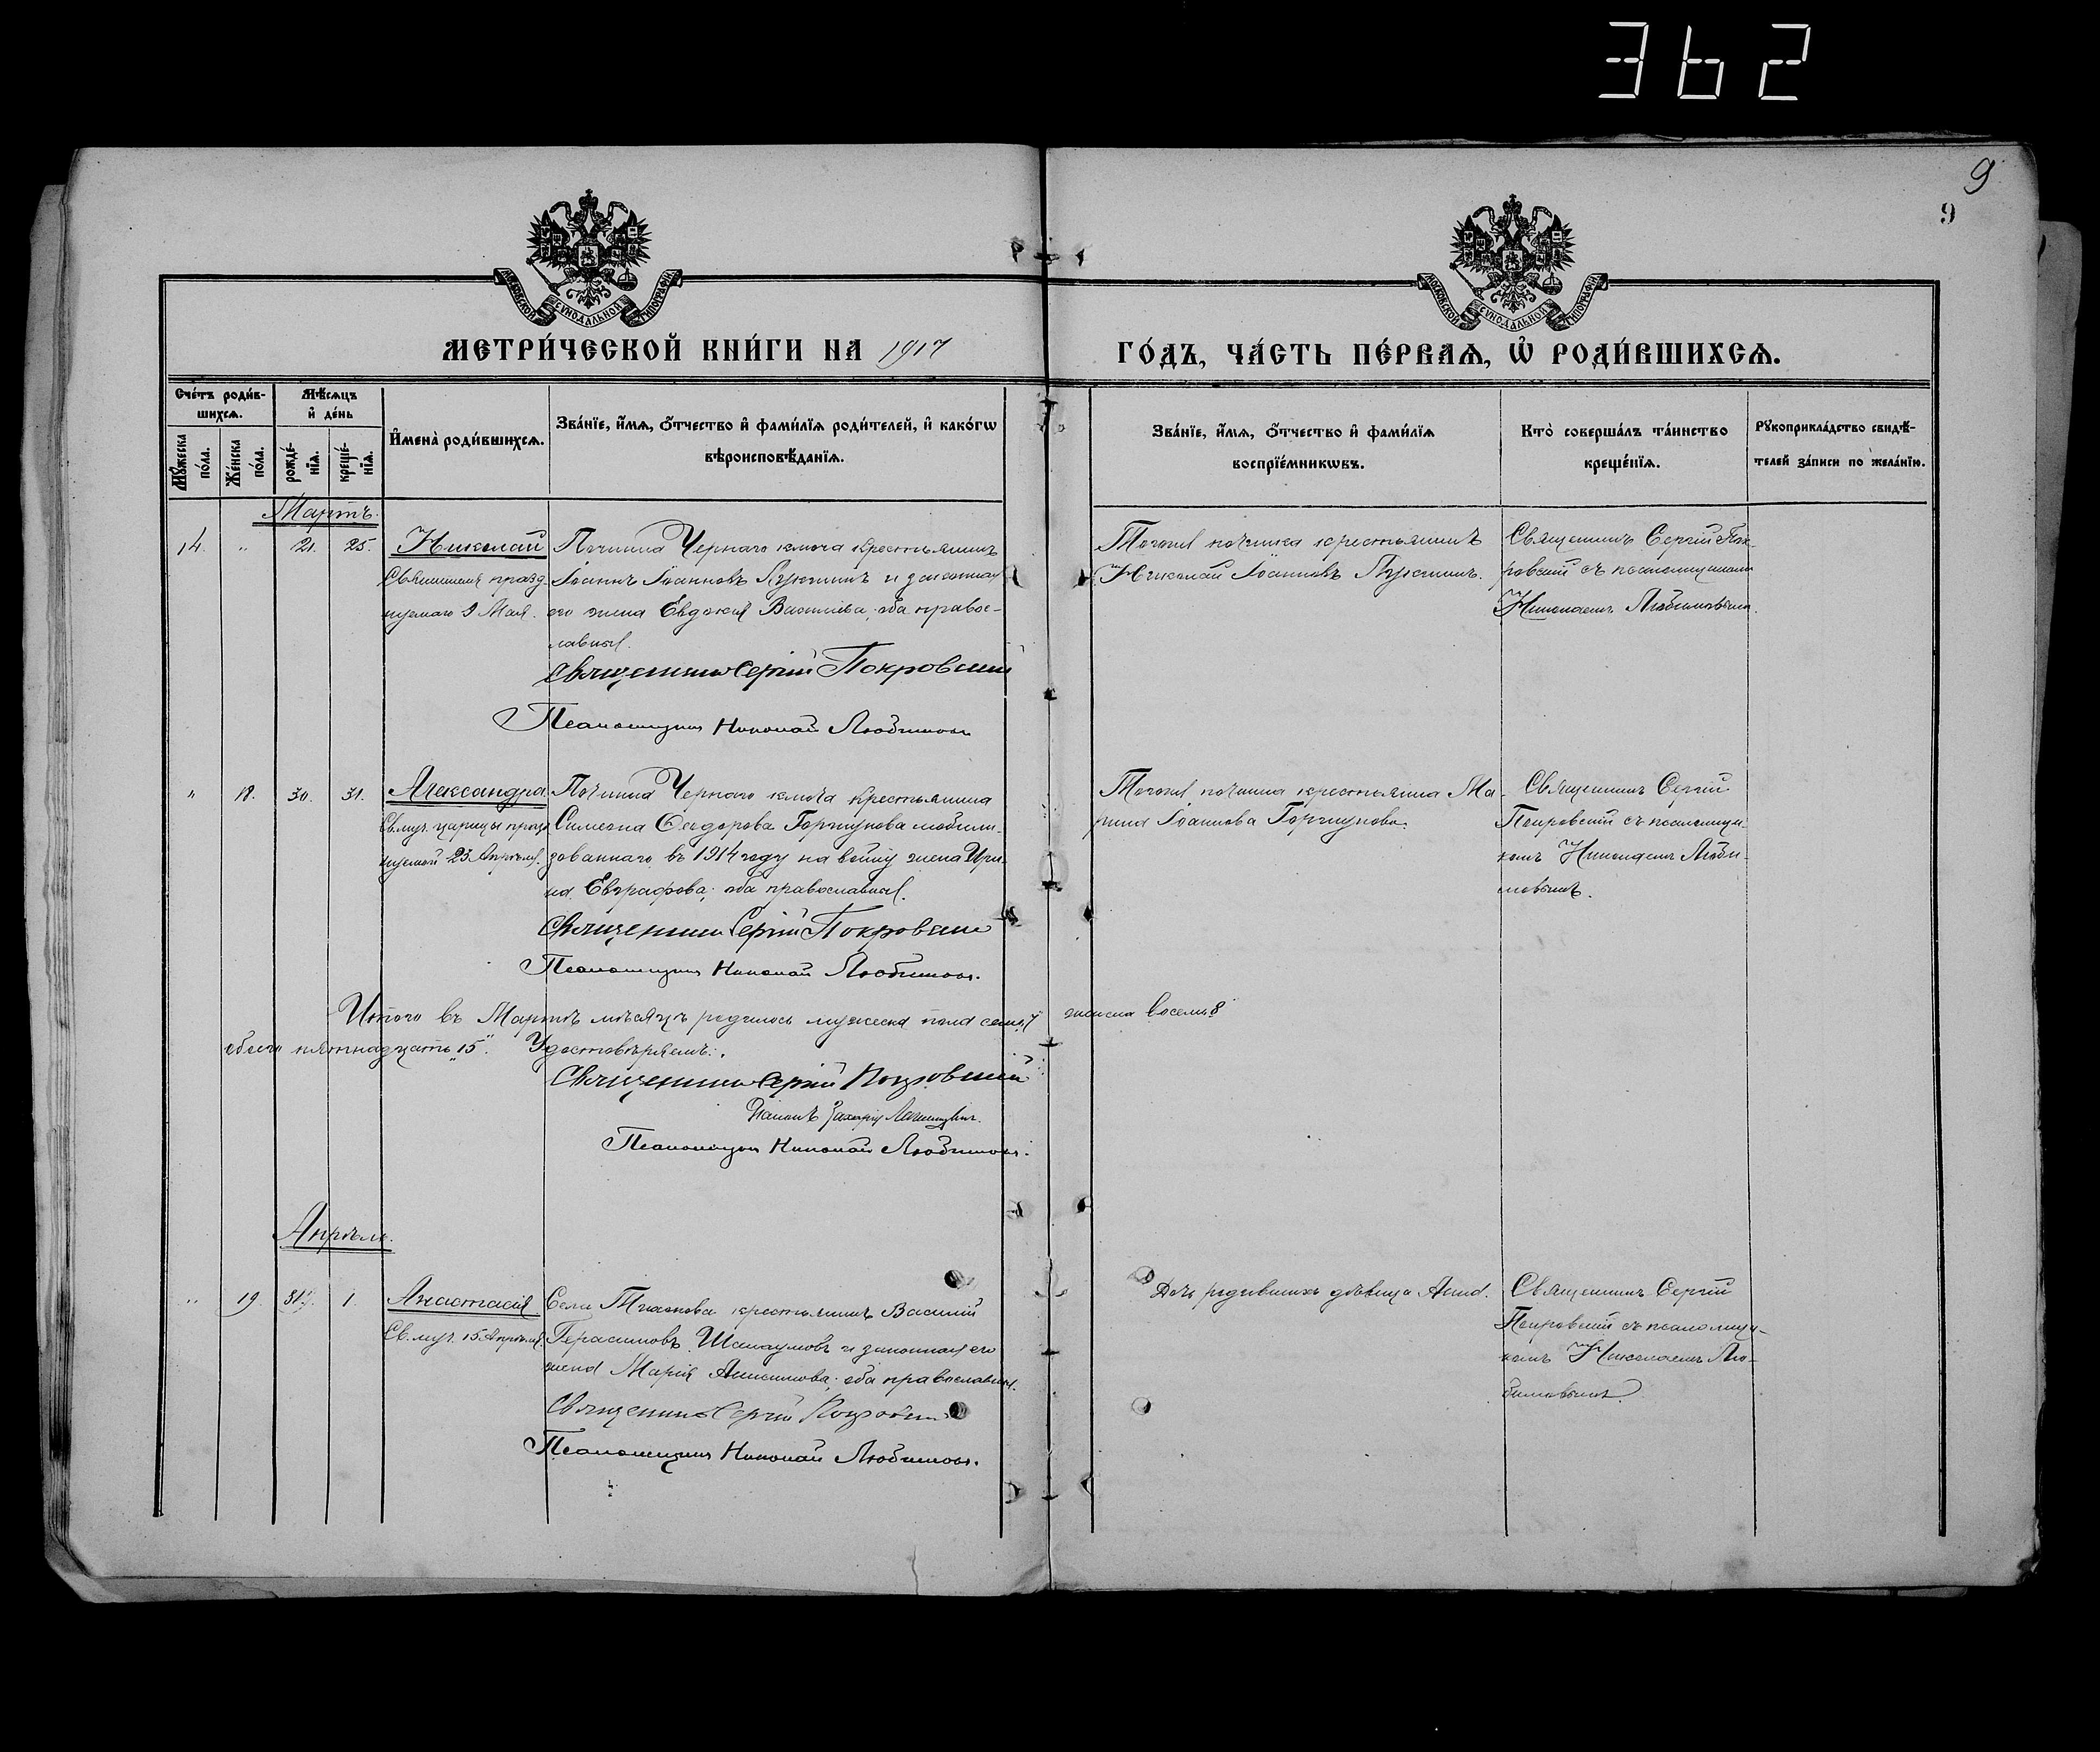 362
9
9
МОСКОВСКОЙ СѴНОДАЛЬНОЙ ТИПОГРАФІИ
МОСКОВСКОЙ СѴНОДАЛЬНОЙ ТИПОГРАФІИ
МЕТРИ́ЧЕСКОЙ КНИ́ГИ НА 1917
ГО́ДЪ, ЧА́СТЬ ПЕ́РВАѦ, Ѽ РОДИ́ВШИХСѦ.
Сче́тъ роди́в-
шихсѧ.
Мѣ́сѧцъ
и҆ де́нь
Мꙋ́жеска
по́ла.
Же́нска
по́ла.
рожде́-
нїѧ.
креще́-
нїѧ.
И҆мена̀ роди́вшихсѧ.
Зва́нїе, и҆́мѧ, ѻ҆́тчество и҆ фами́лїѧ роди́телей, и҆ како́гѡ
вѣроисповѣ́данїѧ.
Зва́нїе, и҆́мѧ, ѻ҆́тчество и҆ фами́лїѧ
воспрїе́мникѡвъ.
Кто̀ соверша́лъ та́инство
креще́нїѧ.
Рꙋкоприкла́дство свидѣ́-
телей за́писи по жела́нїю.
Мартъ.
14. " 21. 25. Николай
Святитель празд
нуемаго 9 Мая.
Починка Чернаго ключа крестьянинъ
Іоаннъ Іоанновъ и законная
его жена Евдокія Васильева; оба правос-
лавныя.
Священникъ Сергій Покровскій
Псаломщикъ Николай Любимовъ
Тогоже починка крестьянинъ
Николай Іоанновъ
Священникъ Сергій Пок-
ровскій съ псаломщикомъ
Николаемъ Любимовымъ.
" 18. 30. 31. Александра
Св. муч. царицы празд
нуемой 23 Апрѣля.
Починка Чернаго ключа крестьянина
Симеона Ѳеодорова Горшунова мобили-
зованнаго въ 1914 году на войну жена Ири-
на Евграфова; оба православныя.
Священникъ Сергій Покровскій
Псаломщикъ Николай Любимовъ.
Тогоже починка крестьянина Ма-
рина Іоаннова Горшунова.
Священникъ Сергій
Покровскій съ псаломщи-
комъ Николаемъ Люби-
мовымъ.
Итого въ Мартѣ мѣсяцѣ родилось мужеска пола семь 7 женска восемь 8
обоего пятнадцать "15". Удостовѣряемъ:
Священникъ Сергій Покровскій
Діаконъ Захарій
Псаломщикъ Николай Любимовъ.
Апрѣль.
" 19. 31 1. Анастасія
Св. муч. 15 Апрѣля.
Села крестьянинъ Василій
Герасимовъ и законная его
жена Марія Анисимова; оба православныя.
Священникъ Сергій Покровскій
Псаломщикъ Николай Любимовъ.
Дочь родившихъ дѣвица Анна.
Священникъ Сергій
Покровскій съ псаломщи-
комъ Николаемъ Лю-
бимовымъ.